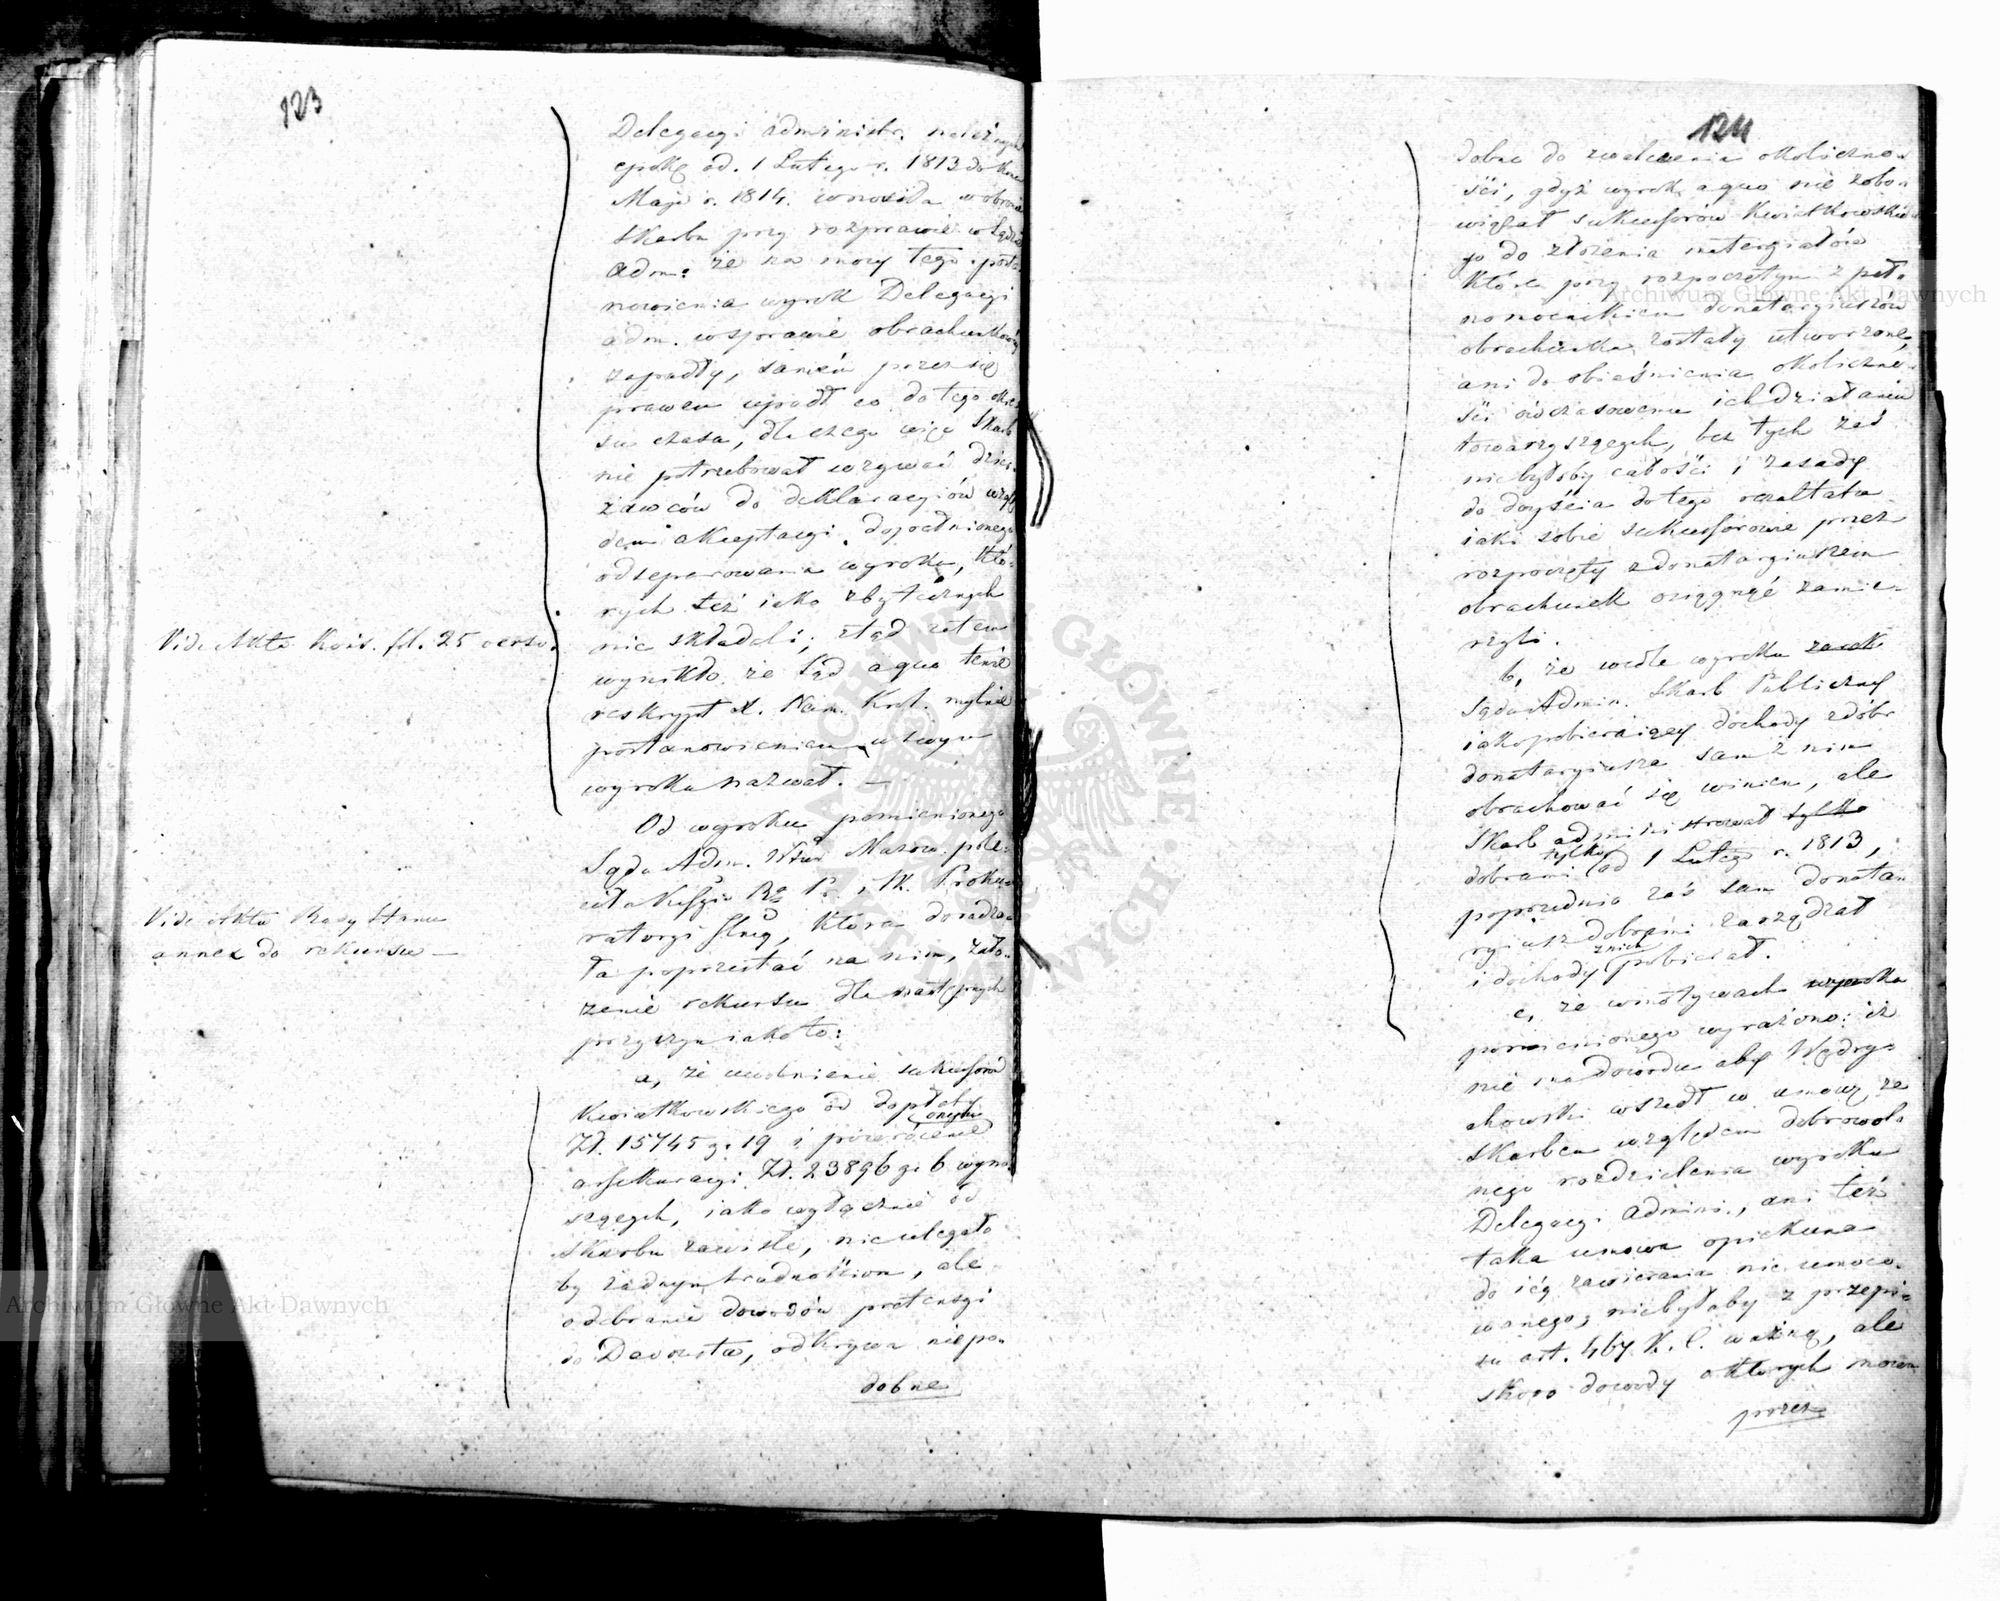 123
Delegacyi administr. należnych
epokę od 1 Lutego r. 1813 do końca
Maja r. 1814. wnosiła w obronie
Skarbu przy rozprawie w Sądzie
Adm: że na mocy tego posta-
nowienia wyrok Delegacyi
adm. w sprawie obrachunkowéy
zapadły, samém przez się
prawem upadł co do tego okre-
su czasu, dla czego więc Skarb
nie potrzebował wzywać dzier-
żawców do deklaracyiów wzglę-
dem akceptacyi dopełnionego
odseparowania wyroku, któ-
rych też iako zbytecznych
nie składali; ztąd zatem
wynikło że Sąd a quo tenże
reskrypt X. Nam. Król. mylnie
postanowieniem w swym
wyroku nazwał. —
Vide Akta Kois. fol. 25 verso.
Od wyroku pomienionego
Sądu Adm. Wtwa Mazow. pole-
ciła Kommissya Rz. P. i Sk. Proku-
ratoryi
która doradza-
ła poprzestać na nim, zało-
żenie rekursu dla następnych
przyczyn iako to:
Vide Akta Rady Stanu
annex do rekursu —
a, że uwolnienie sukcessorów
Kwiatkowskiego od dopłaty
Zł. 15745 g. 19 i przywrócenie onymże
assekuracyi Zł. 23896 gr 6 wyno-
szących, iako wyłącznie od
Skarbu zawisłe, nie ulegało
by żadnym trudnościom, ale
odebranie dowodów pretensyi
do Davousta, odkrywa niepo-
dobne
124
dobne do zwalczenia okoliczno-
ści, gdyż wyrok a quo nie zobo-
wiązał sukcessorów Kwiatkowskie-
go do złożenia materyiałów
które przy rozpoczętym z peł-
nomocnikiem donataryuszów
obrachunku zostały utworzone,
ani do obiaśnienia okoliczno-
ści ówczasowemu ich działaniu
towarzyszących, bez tych zaś
nie byłoby całości i zasady
do doyścia do tego rezultatu
iaki sobie sukcessorowie przez
rozpoczęty z donataryiuszem
obrachunek osiągnąć zamie-
rzyli.
b, że wedle wyroku
Sądu Admin. Skarb Publiczny
iako pobieraiący dochody z dóbr
donataryiusza sam z nim
obrachować się winien, ale
Skarb administrował tylko
dobrami tylko od 1 Lutego r. 1813,
poprzednio zaś sam donata-
ryiusz dobrami zarządzał
i dochody z nich pobierał.
c, że w motywach wyroku
pomienionego wyrażono: iż
nie ma dowodu aby Wędry-
chowski wszedł w umowę ze
Skarbem względem dobrowol-
nego rozdzielenia wyroku
Delegacyi Admini., ani też
taka umowa opiekuna
do iéy zawierania nie umoco-
wanego, nie byłaby z przepi-
su art. 467 K. C. ważną, ale
skoro dowody o których mowa
przez